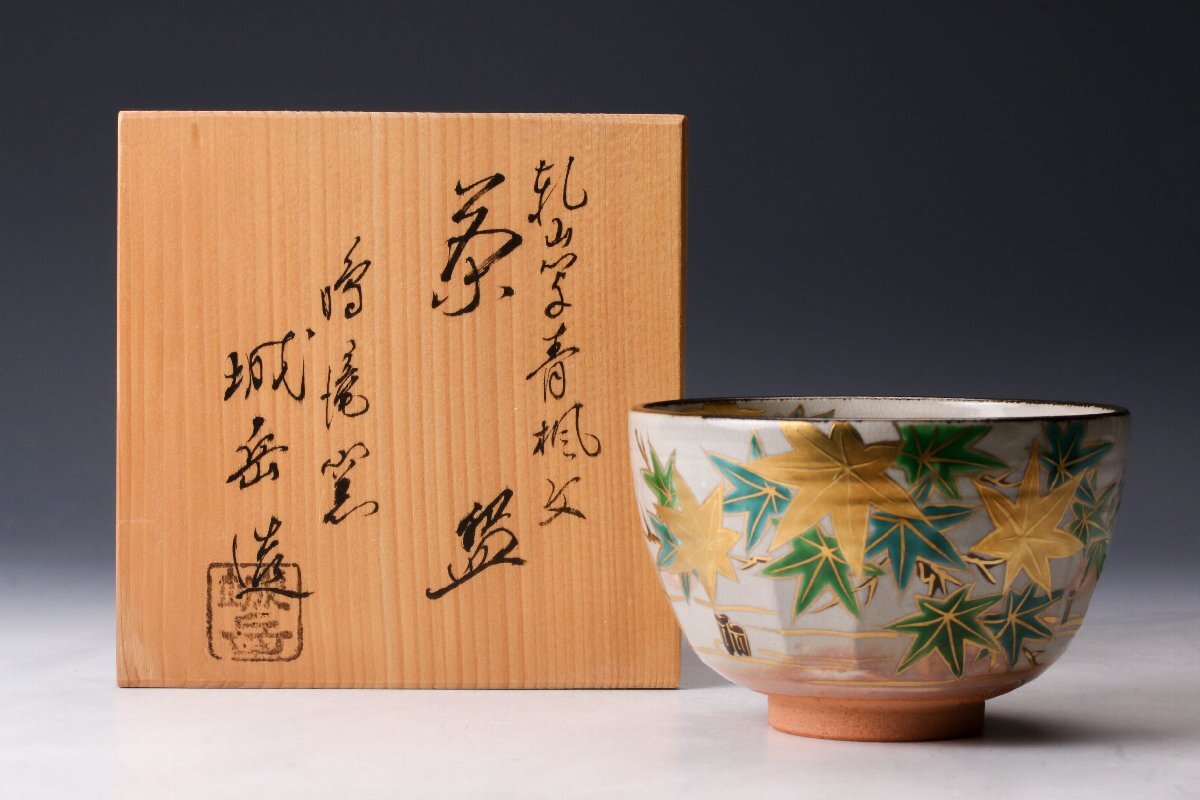 乾山写青楓文
茶盌
鳴滝窯
城岳造
城岳